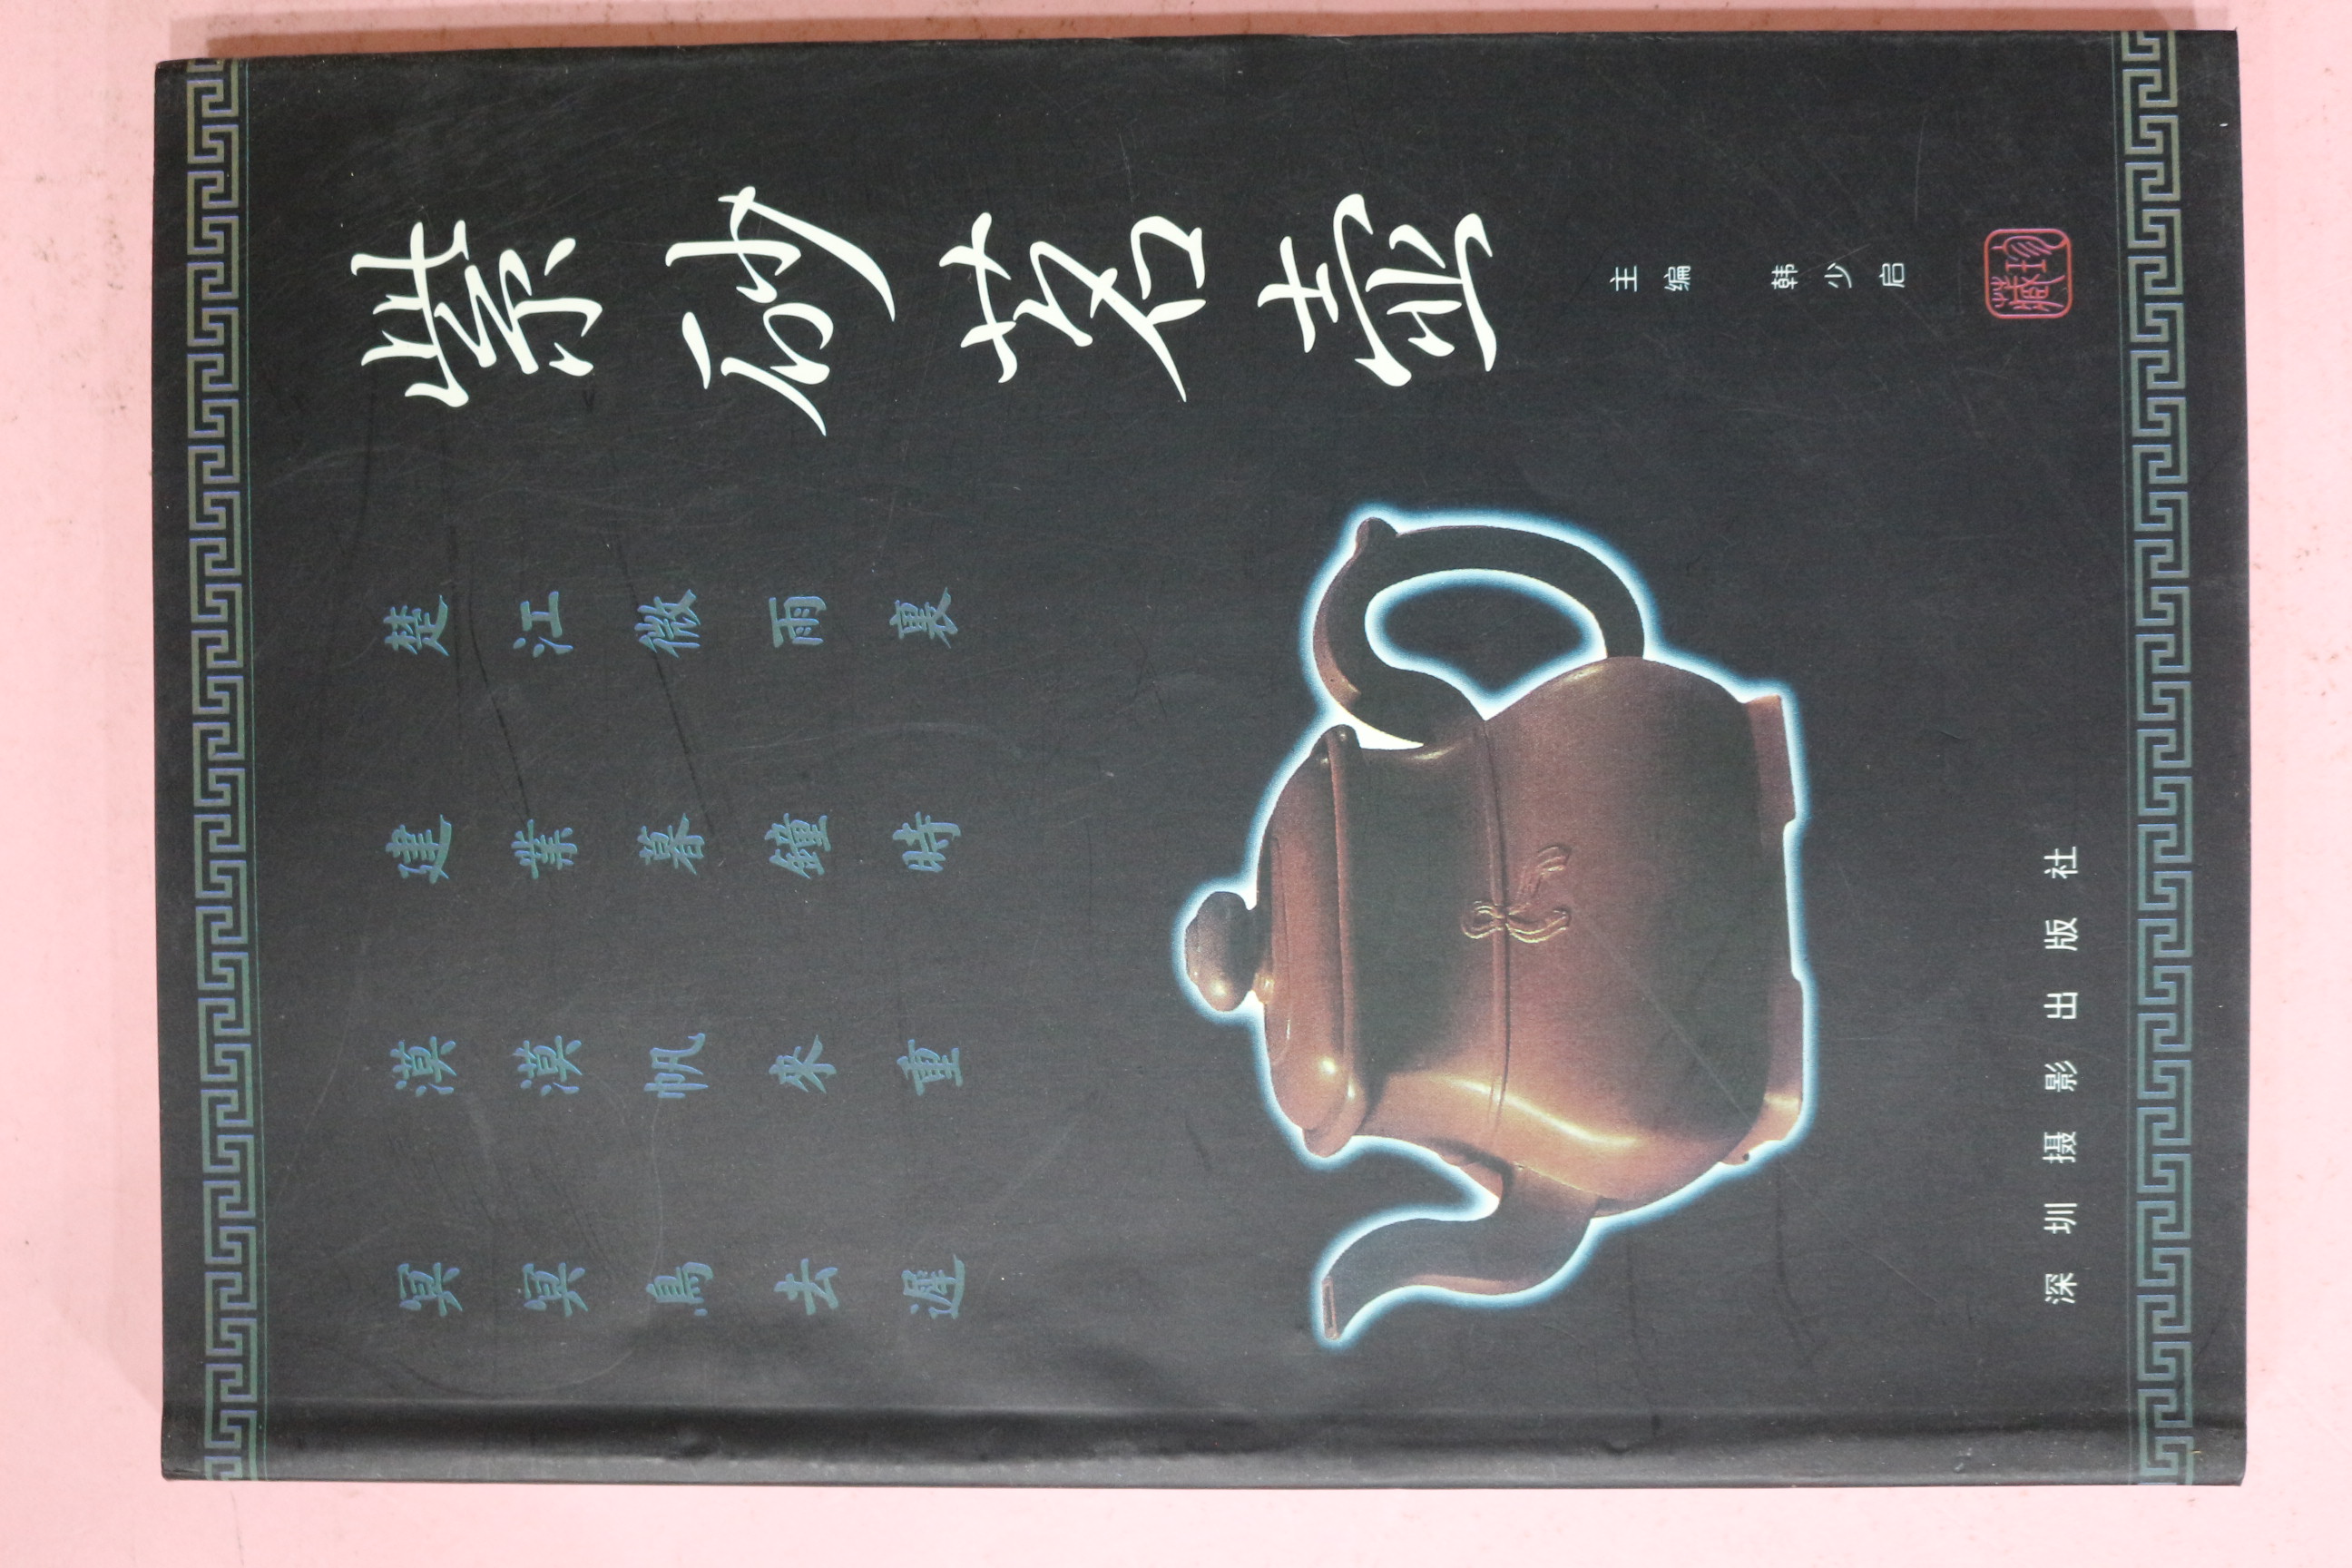 紫砂茗壶
主编 韩少启
珍藏
楚江微雨裏
建業暮鐘時
漠漠帆來重
冥冥鳥去遲
深圳摄影出版社